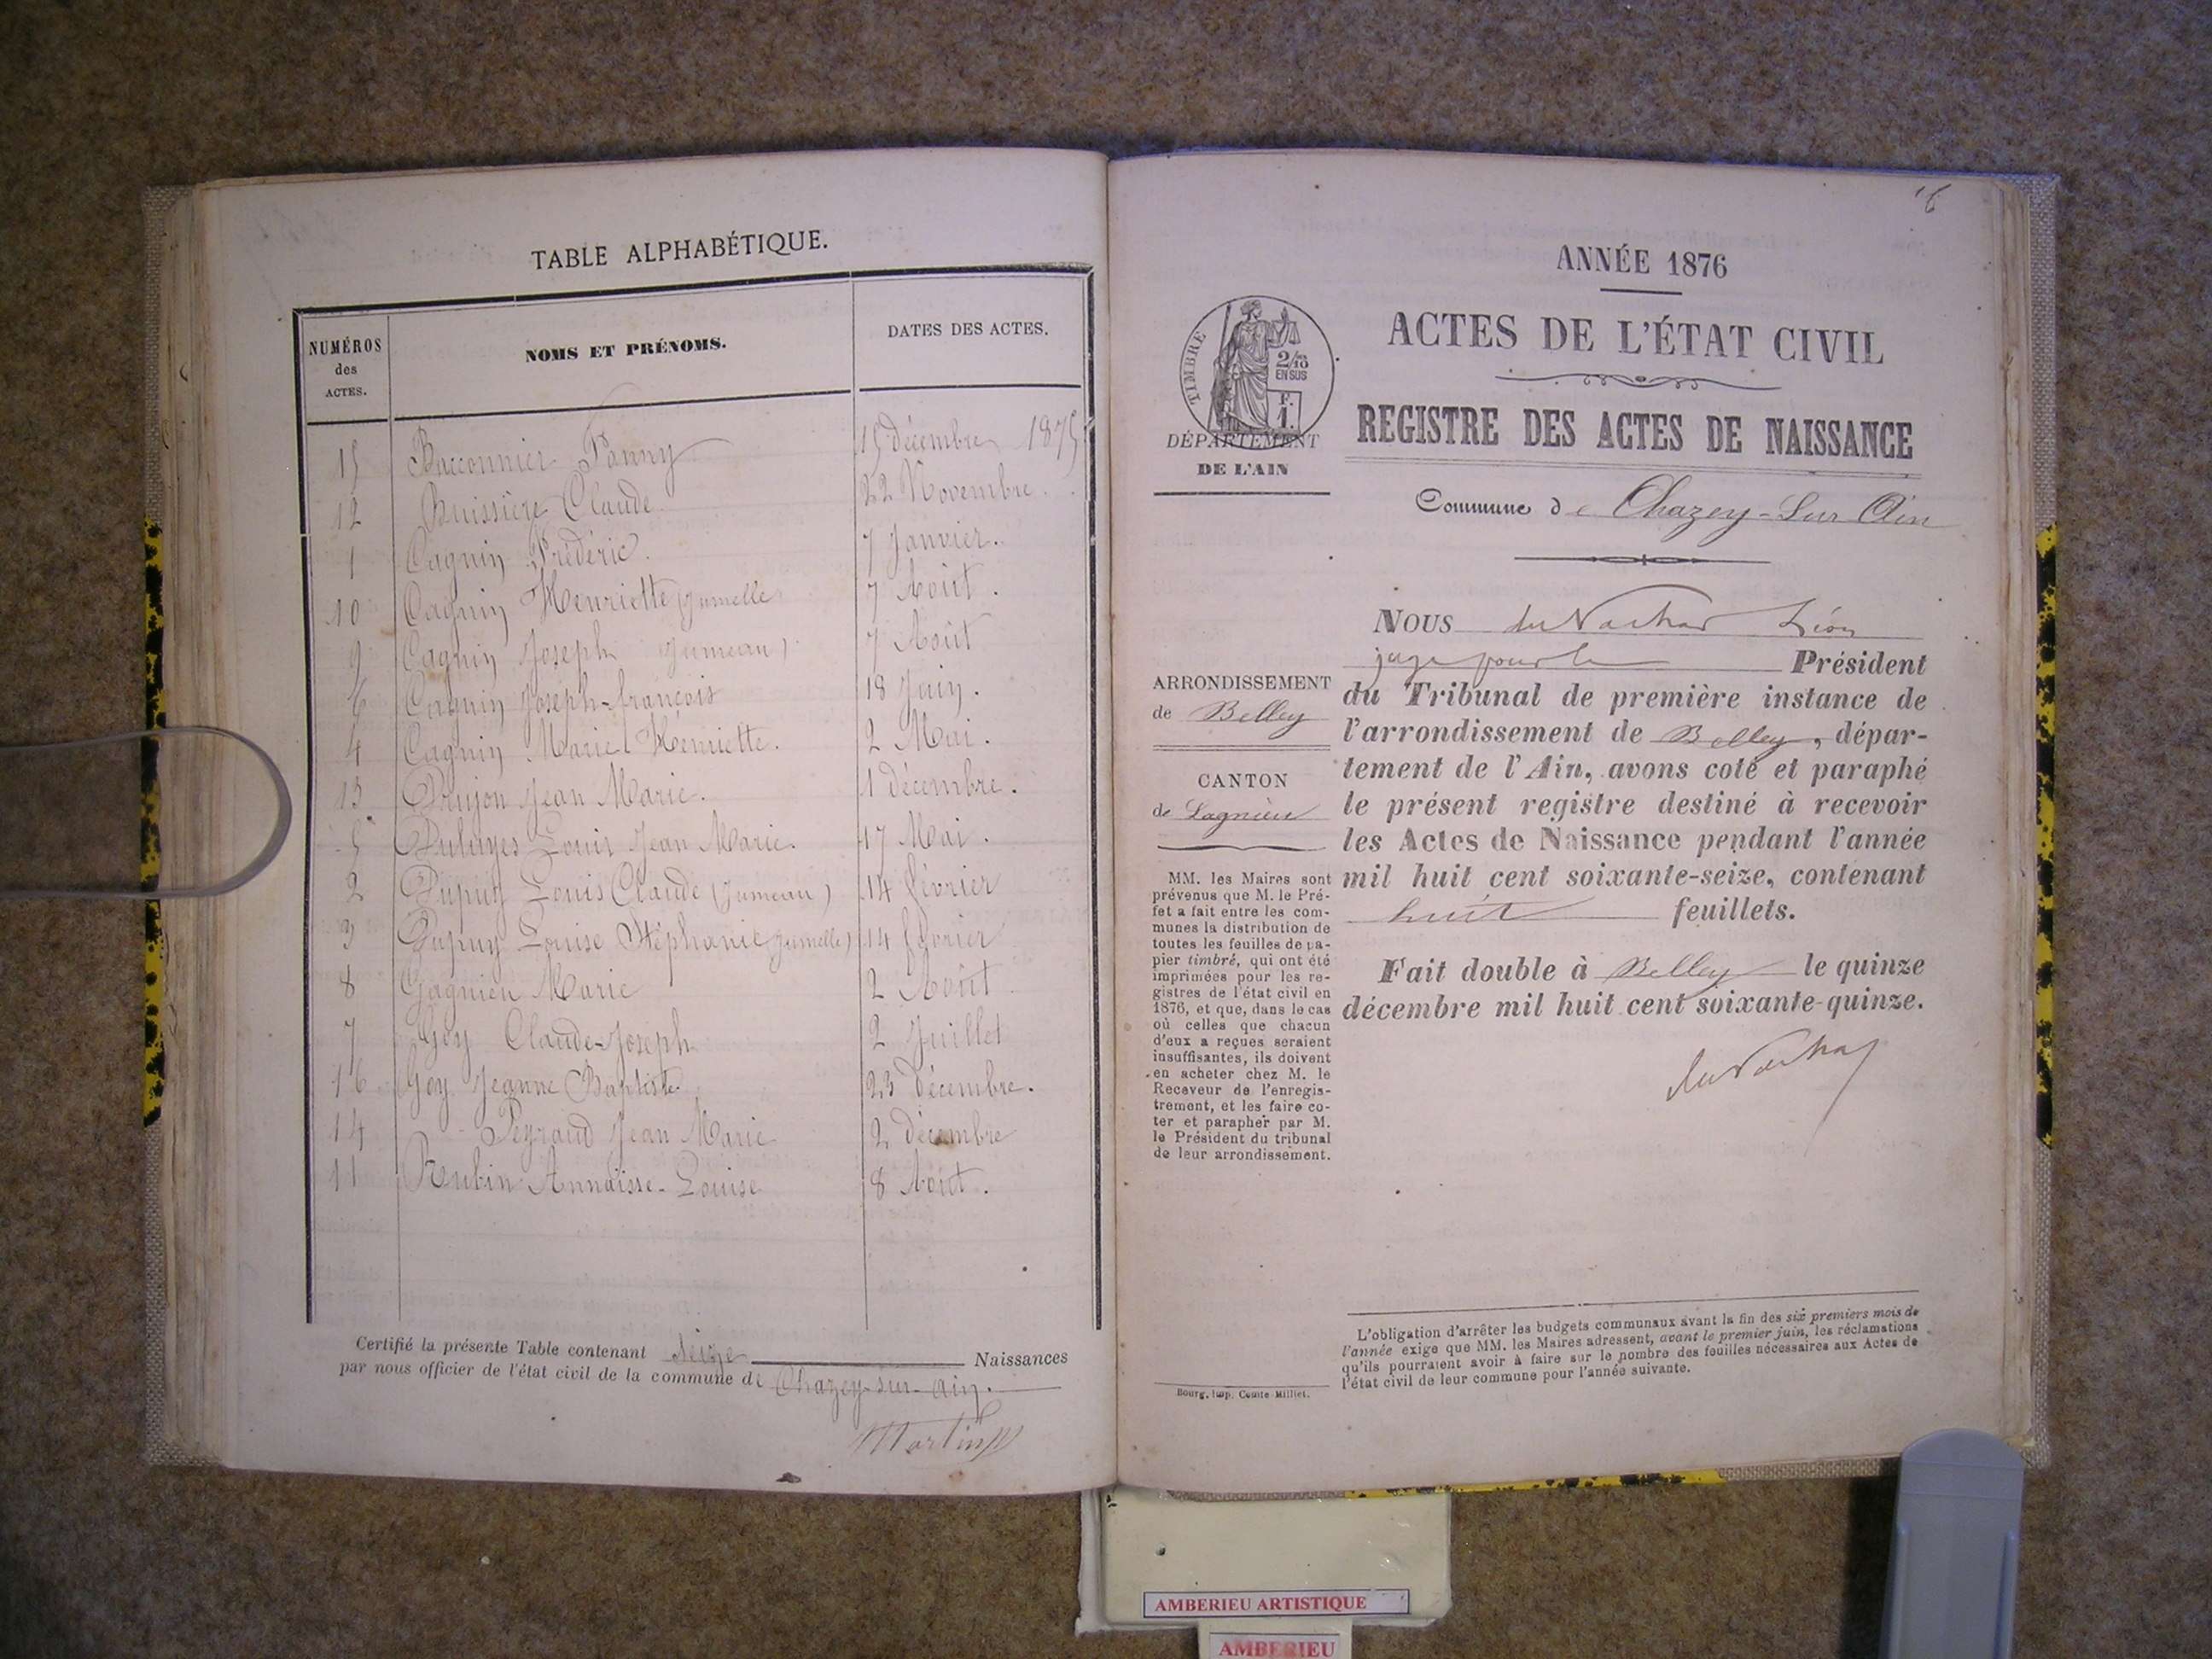 TABLE ALPHABÉTIQUE.
NUMÉROS des ACTES. NOMS ET PRÉNOMS. DATES DES ACTES.
15 Fanny 15 décembre 1875
12 Buissière Claude 22 Novembre.
1 Cagnin Frédéric. 7 Janvier.
10 Cagnin Henriette (jumelle) 7 Août.
9 Cagnin Joseph (jumeau) 7 Août
6 Cagnin Joseph-françois 18 Juin.
4 Cagnin Marie Henriette. 2 Mai.
13 Drujon Jean Marie. 1 décembre.
5 Louis Jean Marie. 17 Mai.
2 Dupuy Louis Claude (jumeau) 14 février
3 Dupuy Louise Stéphanie (jumelle) 14 février
8 Gagnieu Marie 2 Août
7 Goy Claude-Joseph 2 Juillet
16 Goy Jeanne Baptiste 23 décembre.
14 Peyraud Jean Marie 2 décembre
11 Rubin Annaïsse-Louise 8 Août.
Certifié la présente Table contenant seize Naissances
par nous officier de l'état civil de la commune de Chazey-sur-ain.
Martin
ANNÉE 1876
ACTES DE L'ÉTAT CIVIL
TIMBRE
2/10
EN SUS
F.
1.
DÉPARTEMENT
DE L'AIN
REGISTRE DES ACTES DE NAISSANCE
Commune de Chazey-Sur Ain
ARRONDISSEMENT
de Belley
CANTON
de Lagnieu
MM. les Maires sont
prévenus que M. le Pré-
fet a fait entre les com-
munes la distribution de
toutes les feuilles de pa-
pier timbré, qui ont été
imprimées pour les re-
gistres de l'état civil en
1876, et que, dans le cas
où celles que chacun
d'eux a reçues seraient
insuffisantes, ils doivent
en acheter chez M. le
Receveur de l'enregis-
trement, et les faire co-
ter et parapher par M.
le Président du tribunal
de leur arrondissement.
NOUS Léon
juge pour le Président
du Tribunal de première instance de
l'arrondissement de Belley, dépar-
tement de l'Ain, avons coté et paraphé
le présent registre destiné à recevoir
les Actes de Naissance pendant l'année
mil huit cent soixante-seize, contenant
huit feuillets.
Fait double à Belley le quinze
décembre mil huit cent soixante-quinze.
L'obligation d'arrêter les budgets communaux avant la fin des six premiers mois de
l'année exige que MM. les Maires adressent, avant le premier juin, les réclamations
qu'ils pourraient avoir à faire sur le nombre des feuilles nécessaires aux Actes de
l'état civil de leur commune pour l'année suivante.
Bourg, imp. Comte-Milliet.
AMBERIEU ARTISTIQUE
AMBERIEU